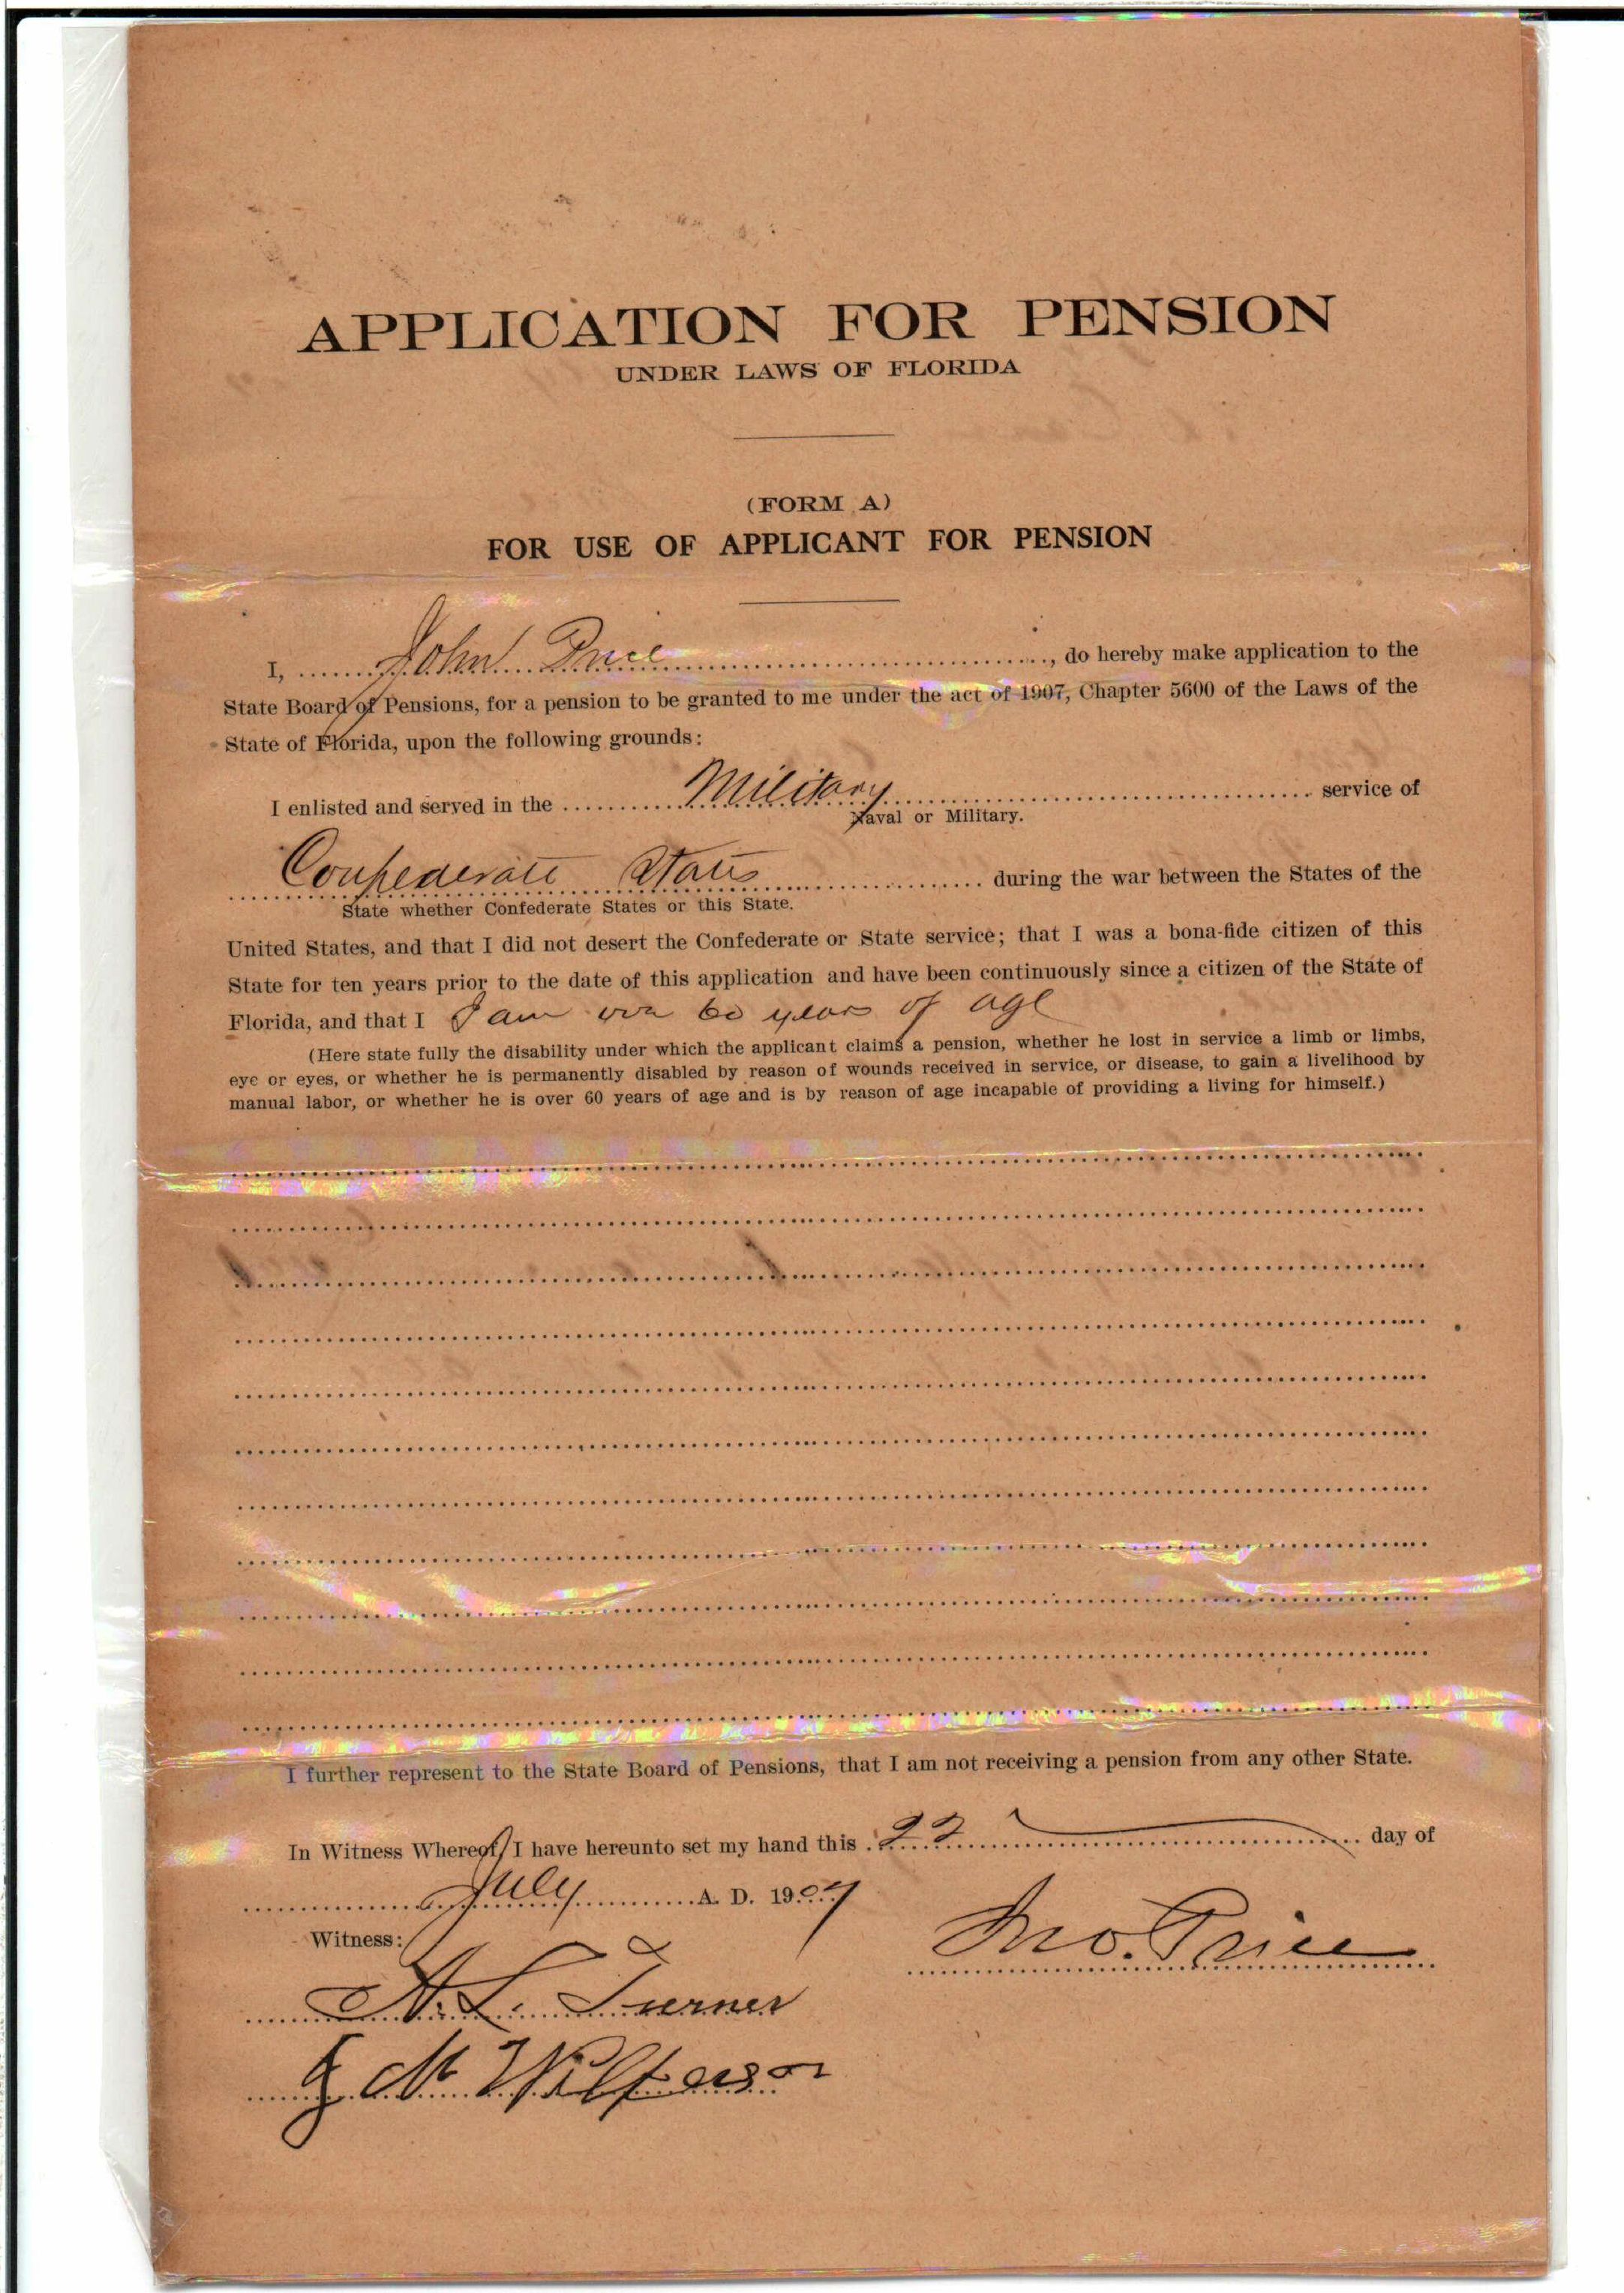 APPLICATION FOR PENSION
UNDER LAWS OF FLORIDA
(FORM A)
FOR USE OF APPLICANT FOR PENSION
I, John Price, do hereby make application to the
State Board of Pensions, for a pension to be granted to me under the act of 1907, Chapter 5600 of the Laws of the
State of Florida, upon the following grounds:
I enlisted and served in the Military service of
Naval or Military.
Confederate States during the war between the States of the
State whether Confederate States or this State.
United States, and that I did not desert the Confederate or State service; that I was a bona-fide citizen of this
State for ten years prior to the date of this application and have been continuously since a citizen of the State of
Florida, and that I I am over 60 years of age
(Here state fully the disability under which the applicant claims a pension, whether he lost in service a limb or limbs,
eye or eyes, or whether he is permanently disabled by reason of wounds received in service, or disease, to gain a livelihood by
manual labor, or whether he is over 60 years of age and is by reason of age incapable of providing a living for himself.)
I further represent to the State Board of Pensions, that I am not receiving a pension from any other State.
In Witness Whereof, I have hereunto set my hand this 22 day of
July A. D. 1907
Witness:
Jno. Price
A. L. Turner